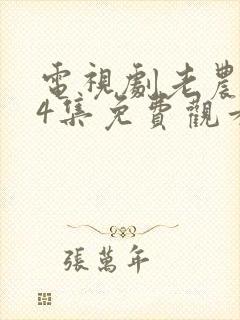 電視劇老農
4集免費觀看
張萬年